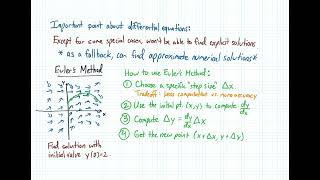 Important point about differential equations:
Except for some special cases, won't be able to find explicit solutions
* as a fallback, can find approximate numerical solutions *
Euler's Method
How to use Euler's Method:
① Choose a specific "step size" Δx.
Tradeoff: less computation vs. more accuracy
② Use the initial pt. (x,y) to compute dy/dx
③ Compute Δy = dy/dx Δx
④ Get the new point (x+Δx, y+Δy).
Find solution with
initial value y(0)=2.